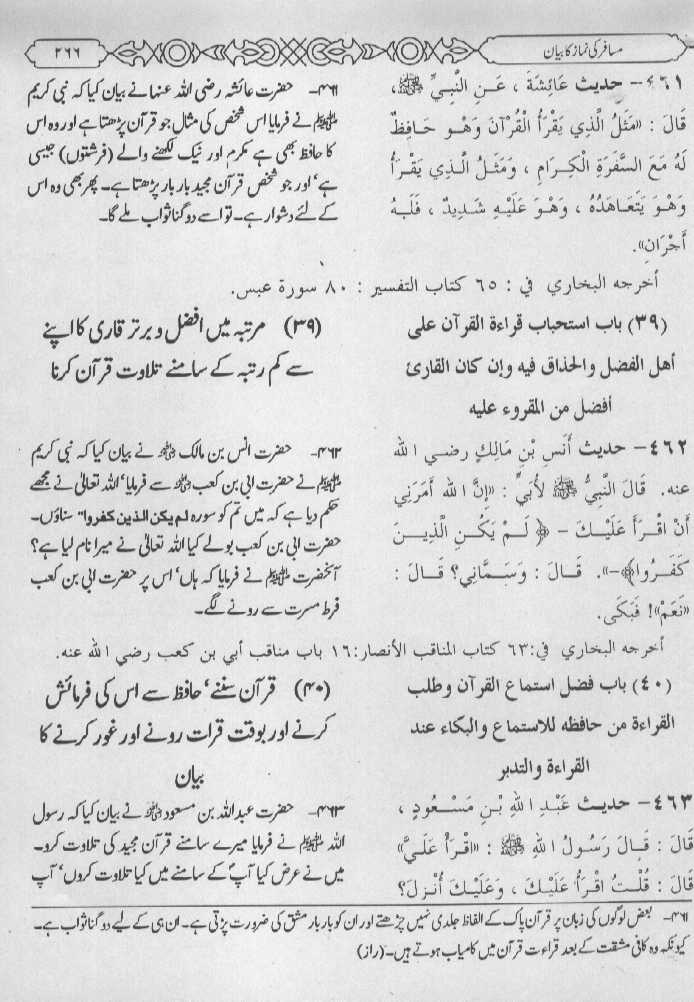 مسافر کی نماز کا بیان
۲۶۶
٤٦١- حديث عَائِشَةَ ، عَنِ النَّبِيِّ ﷺ ،
قَالَ : «مَثَلُ الَّذِي يَقْرَأُ الْقُرْآنَ وَهُوَ حَافِظٌ
لَهُ مَعَ السَّفَرَةِ الْكِرَامِ ، وَمَثَلُ الَّذِي يَقْرَأُ
وَهُوَ يَتَعَاهَدُهُ ، وَهُوَ عَلَيْهِ شَدِيدٌ ، فَلَهُ
أَجْرَانِ».
۴۶۱- حضرت عائشہ رضی اللہ عنہا نے بیان کیا کہ نبی کریم
ﷺ نے فرمایا اس شخص کی مثال جو قرآن پڑھتا ہے اور وہ اس
کا حافظ بھی ہے مکرم اور نیک لکھنے والے (فرشتوں) جیسی
ہے‘ اور جو شخص قرآن مجید بار بار پڑھتا ہے۔ پھر بھی وہ اس
کے لئے دشوار ہے۔ تو اسے دوگنا ثواب ملے گا۔
أخرجه البخاري في : ٦٥ كتاب التفسير : ٨٠ سورة عبس.
(٣٩) باب استحباب قراءة القرآن على
أهل الفضل والحذاق فيه وإن كان القارئ
أفضل من المقروء عليه
(۳۹) مرتبہ میں افضل و برتر قاری کا اپنے
سے کم رتبہ کے سامنے تلاوت قرآن کرنا
٤٦٢- حديث أَنَسِ بْنِ مَالِكٍ رضي الله
عنه. قَالَ النَّبِيُّ ﷺ لأُبَيٍّ : «إِنَّ الله أَمَرَنِي
أَنْ اقْرَأَ عَلَيْكَ - ﴿ لَمْ يَكُنِ الَّذِينَ
كَفَرُوا﴾-». قَالَ : وَسَمَّانِي؟ قَالَ :
«نَعَمْ»! فَبَكَى.
۴۶۲- حضرت انس بن مالک رضی اللہ عنہ نے بیان کیا کہ نبی کریم
ﷺ نے حضرت ابی بن کعب رضی اللہ عنہ سے فرمایا‘ اللہ تعالیٰ نے مجھے
حکم دیا ہے کہ میں تم کو سورہ لم یکن الذین کفروا" سناؤں۔
حضرت ابی بن کعب بولے کیا اللہ تعالیٰ نے میرا نام لیا ہے؟
آنحضرت ﷺ نے فرمایا کہ ہاں‘ اس پر حضرت ابی بن کعب
فرط مسرت سے رونے لگے۔
أخرجه البخاري في:٦٣ كتاب المناقب الأنصار:١٦ باب مناقب أبي بن كعب رضي الله عنه.
(٤٠) باب فضل استماع القرآن وطلب
القراءة من حافظه للاستماع والبكاء عند
القراءة والتدبر
(۴۰) قرآن سننے‘ حافظ سے اس کی فرمائش
کرنے اور بوقت قرات رونے اور غور کرنے کا
بیان
٤٦٣- حديث عَبْدِ اللهِ بْنِ مَسْعُودٍ ،
قَالَ : قَالَ رَسُولُ اللهِ ﷺ : «اقْرَأْ عَلَيَّ»
قَالَ : قُلْتُ اقْرَأُ عَلَيْكَ ، وَعَلَيْكَ أُنْزِلَ؟
۴۶۳- حضرت عبداللہ بن مسعود رضی اللہ عنہ نے بیان کیا کہ رسول
اللہ ﷺ نے فرمایا میرے سامنے قرآن مجید کی تلاوت کرو۔
میں نے عرض کیا آپؐ کے سامنے میں کیا تلاوت کروں‘ آپ
۴۶۱- بعض لوگوں کی زبان پر قرآن پاک کے الفاظ جلدی نہیں چڑھتے اور ان کو بار بار مشق کی ضرورت پڑتی ہے۔ ان ہی کے لیے دوگنا ثواب ہے۔
کیونکہ وہ کافی مشقت کے بعد قراءت قرآن میں کامیاب ہوتے ہیں۔ (راز)